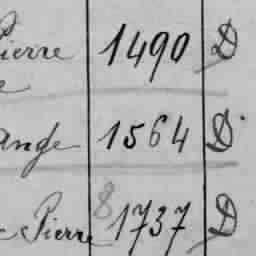 Pierre 1490 D
e
ange 1564 D.
- Pierre 8 1737 D